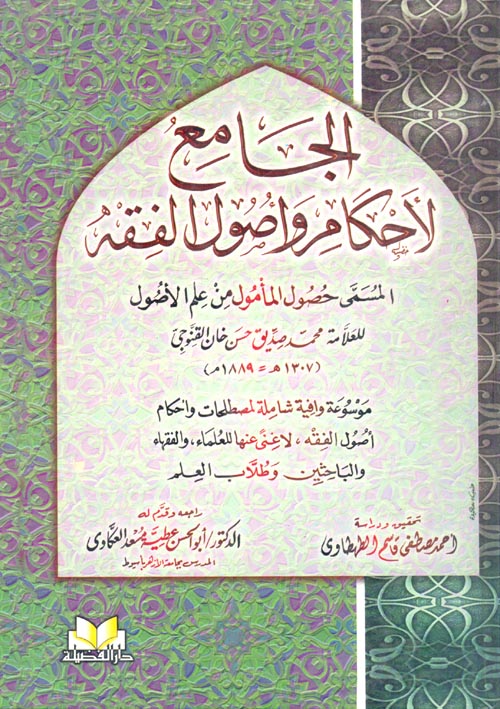 الجامع
لأحكام وأصول الفقه
المسمى حصول المأمول من علم الأصول
للعلامة محمد صديق حسن خان القنوجي
(١٣٠٧ هـ = ١٨٨٩ م)
موسوعة وافية شاملة لمصطلحات وأحكام
أصول الفقه، لا غنى عنها للعلماء، والفقهاء
والباحثين وطلاب العلم
تحقيق ودراسة
أحمد مصطفى قاسم الطهطاوي
راجعه وقدم له
الدكتور/ أبو الحسن عطية مسعد العكاوي
المدرس بجامعة الأزهر بأسيوط
دار الفضيلة